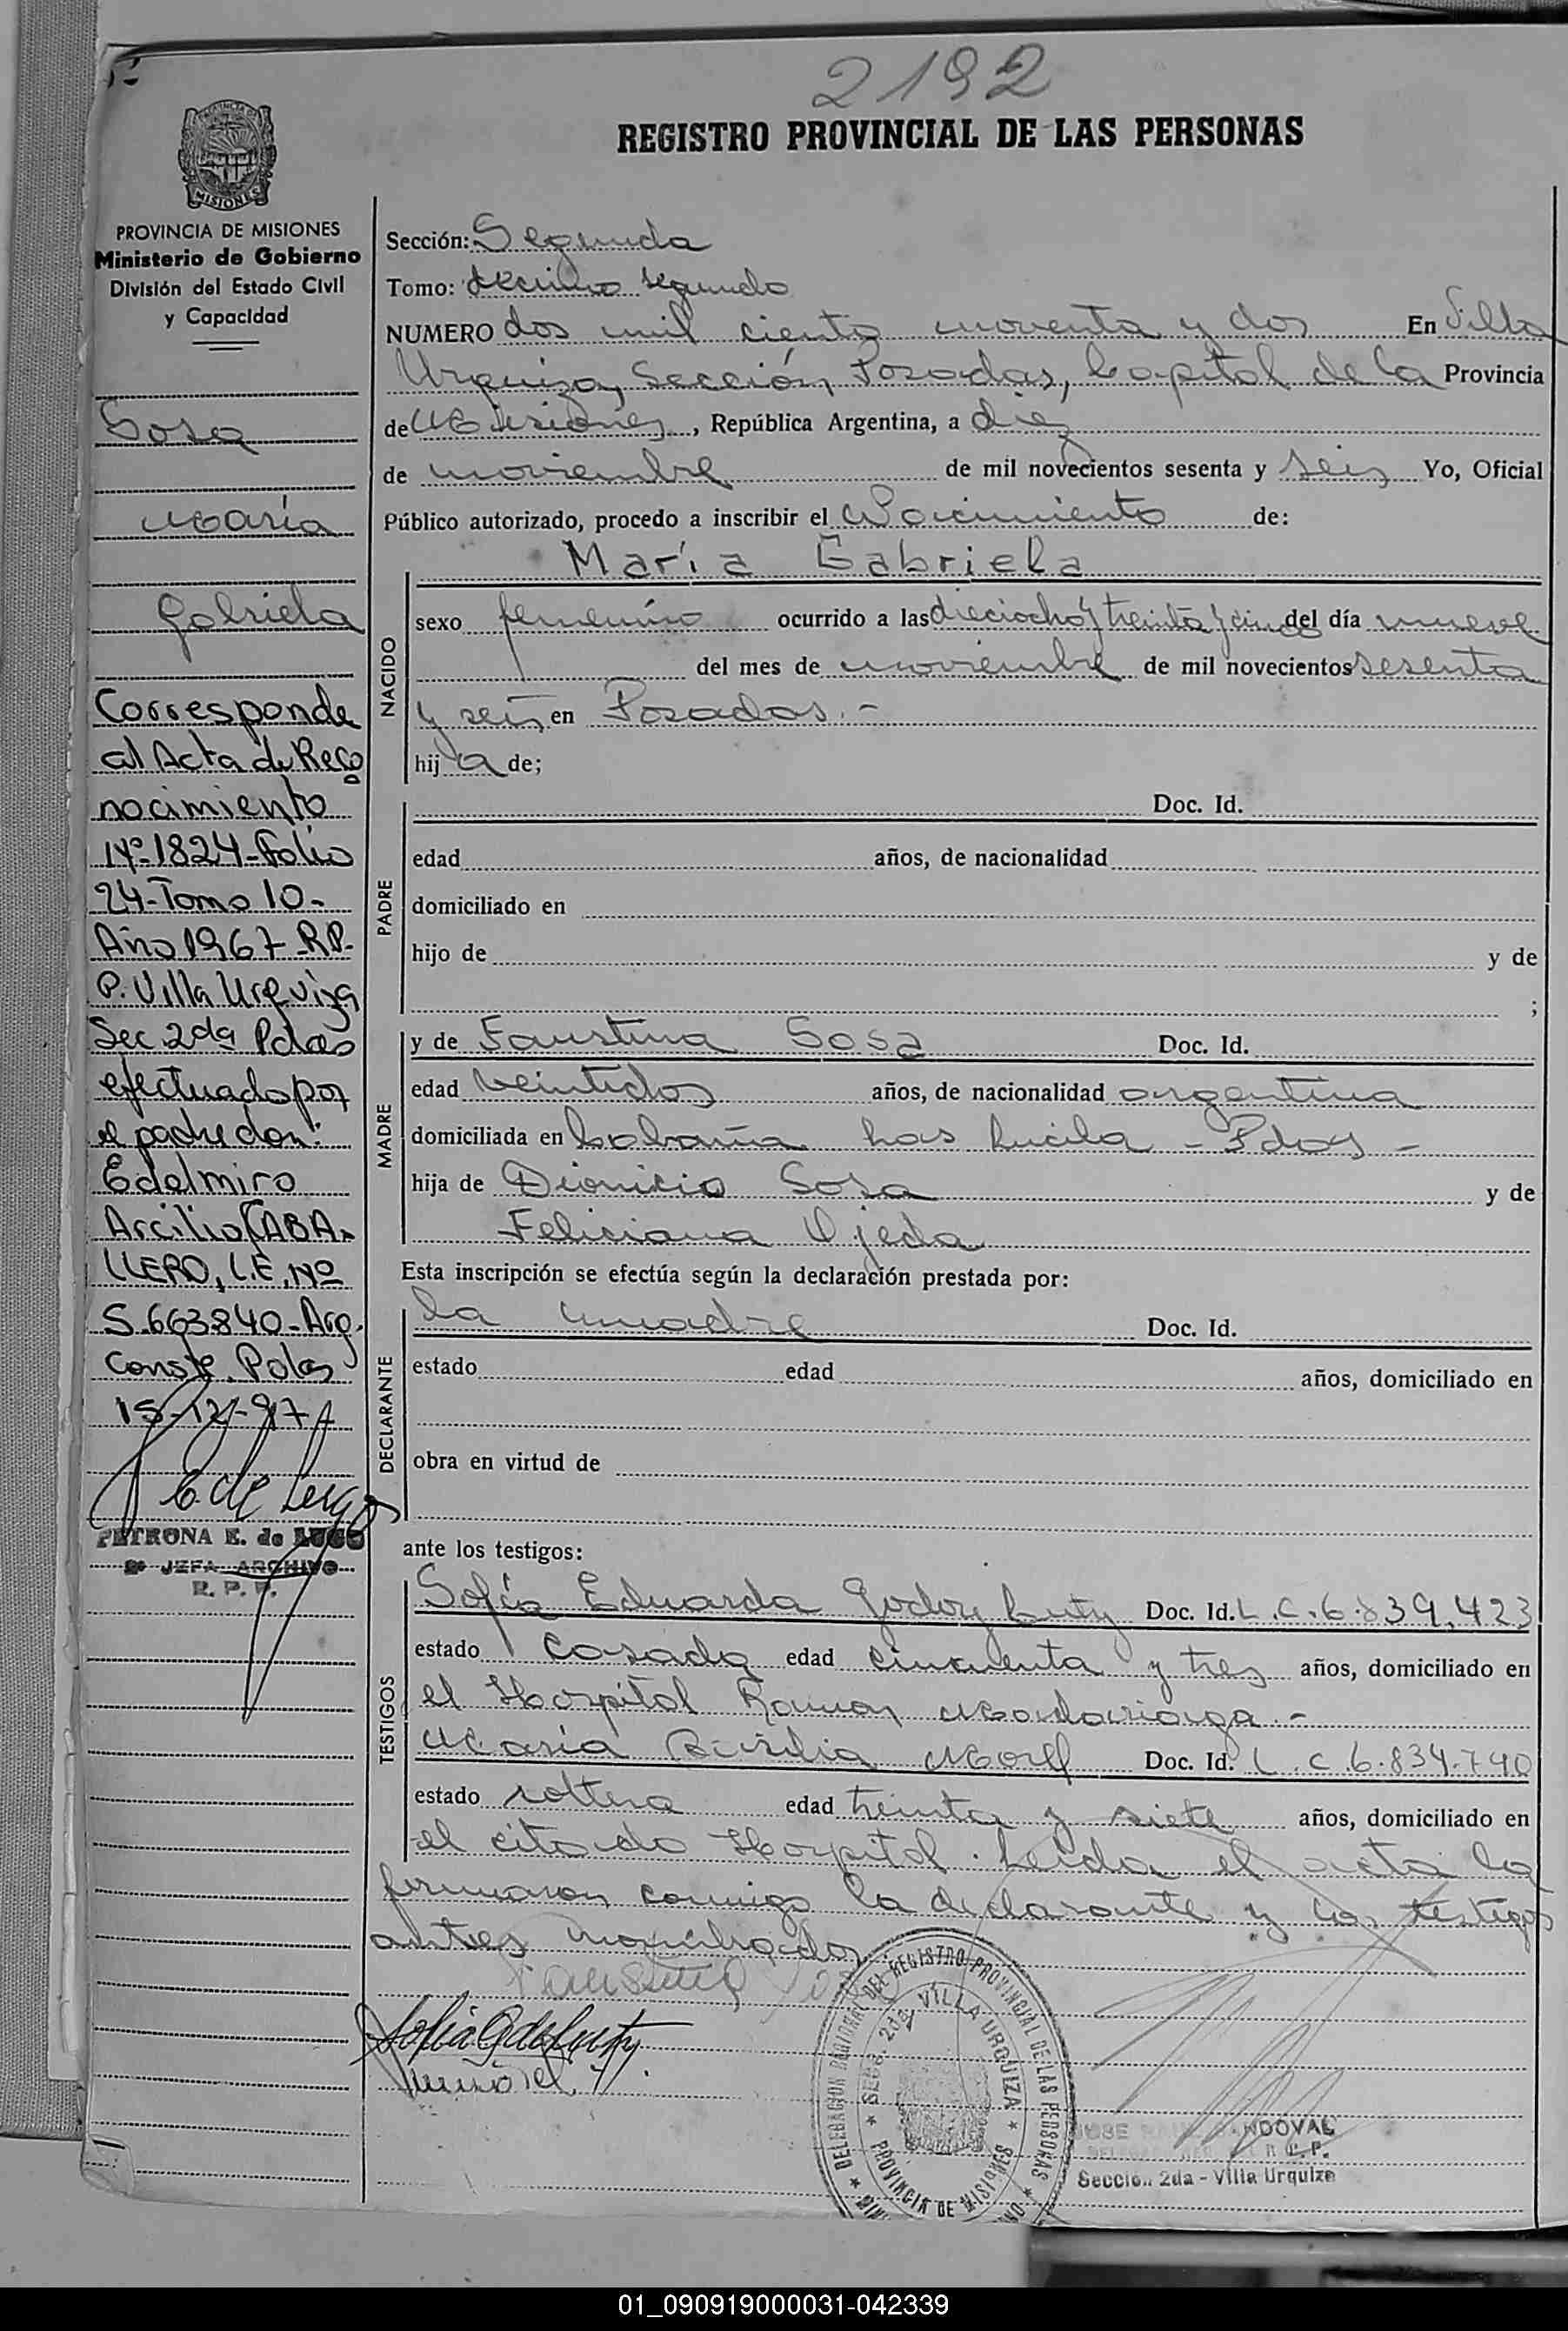 2192
REGISTRO PROVINCIAL DE LAS PERSONAS
MISIONES
PROVINCIA DE MISIONES
Ministerio de Gobierno
División del Estado Civil
y Capacidad
Sosa
María
Gabriela
Corresponde
al Acta de Reco
nocimiento
Nº-1824-Folio
24-Tomo 10-
Año 1967-R.P.
P. Villa Urquiza
Sec 2da Pdas
efectuado por
el padre don:
Edelmiro
Arcilio CABA-
LLERO, L.E. Nº
5.663840-Arg.
Conste. Pdas
15-12-97
PETRONA E. de LUGO
JEFA ARCHIVO
R. P. P.
Sección: Segunda
Tomo: décimo segundo
NUMERO dos mil ciento noventa y dos En Villa
Urquiza, Sección, Posadas, Capital de la Provincia
de Misiones, República Argentina, a diez
de noviembre de mil novecientos sesenta y seis Yo, Oficial
Público autorizado, procedo a inscribir el Nacimiento de:
María Gabriela
NACIDO
sexo femenino ocurrido a las dieciocho y treinta y cinco del día nueve
del mes de noviembre de mil novecientos sesenta
y seis en Posadas.-
hija de;
PADRE
Doc. Id.
edad años, de nacionalidad
domiciliado en
hijo de y de
;
MADRE
y de Faustina Sosa Doc. Id.
edad veintidos años, de nacionalidad argentina
domiciliada en Cabaña Las Lucila - Pdas -
hija de Dionicio Sosa y de
Feliciana Ojeda
Esta inscripción se efectúa según la declaración prestada por:
DECLARANTE
la madre Doc. Id.
estado edad años, domiciliado en
obra en virtud de
ante los testigos:
TESTIGOS
Sofía Eduarda Godoy Luty Doc. Id. L.C. 6.839.423
estado casada edad cincuenta y tres años, domiciliado en
el Hospital Ramon Madariaga.-
María Doc. Id. L.C 6.834.740
estado soltera edad treinta y siete años, domiciliado en
el citado Hospital. Leida el acta la
firmaron conmigo la declarante y los testigos
antes
Faustina Sosa
DELEGACION REGIONAL DEL REGISTRO PROVINCIAL DE LAS PERSONAS
SECC. 2da VILLA URQUIZA
PROVINCIA DE MISIONES
JOSE
Sección 2da - Villa Urquiza
01_090919000031-042339